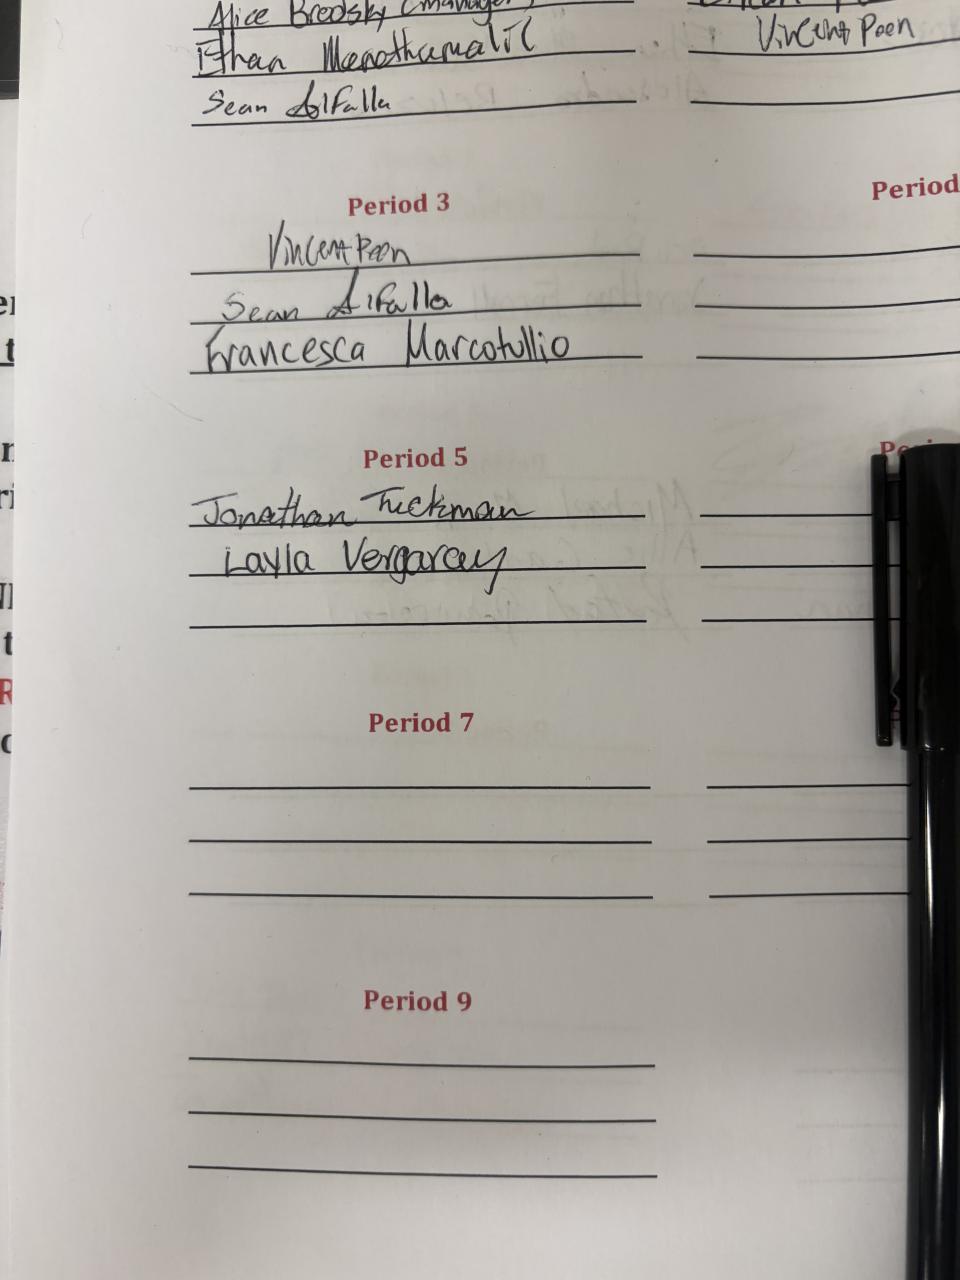 Alice Brodsky (manager)
Ethan Manothumalil
Vincent Poon
Sean Alfalla
Period 3
Period
Vincent Poon
Sean Alfalla
Francesca Marcotullio
Period 5
Jonathan Tuckman
Layla Vergaray
Period 7
Period 9